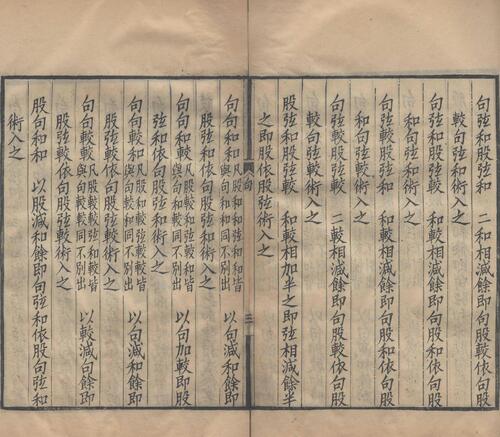 句弦和股弦和　二和相減餘即句股較依句股
較句弦和術入之
句弦和股弦較　和較相減餘即句股和依句股
和句弦和術入之
句弦較股弦和　和較相減餘即句股和依句股
和句弦較術入之
句弦較股弦較　二較相減餘即句股較依句股
較句弦較術入之
股弦和股弦較　和較相加半之即弦相減餘半
之即股依股弦術入之
句
三
句句和和凡股和和弦和和皆與句和和同不別出　以句減和餘即
股弦和依句股弦和術入之
句句和較凡股較和弦較和皆與句和較同不別出　以句加較即股
弦和依句股弦和術入之
句句較和凡股和較弦較較皆與句較和同不別出　以句減和餘即
股弦較依句股弦較術入之
句句較較凡股較較弦和較皆與句較較同不別出　以較減句餘即
股弦較依句股弦較術入之
股句和和　以股減和餘即句弦和依股句弦和
術入之